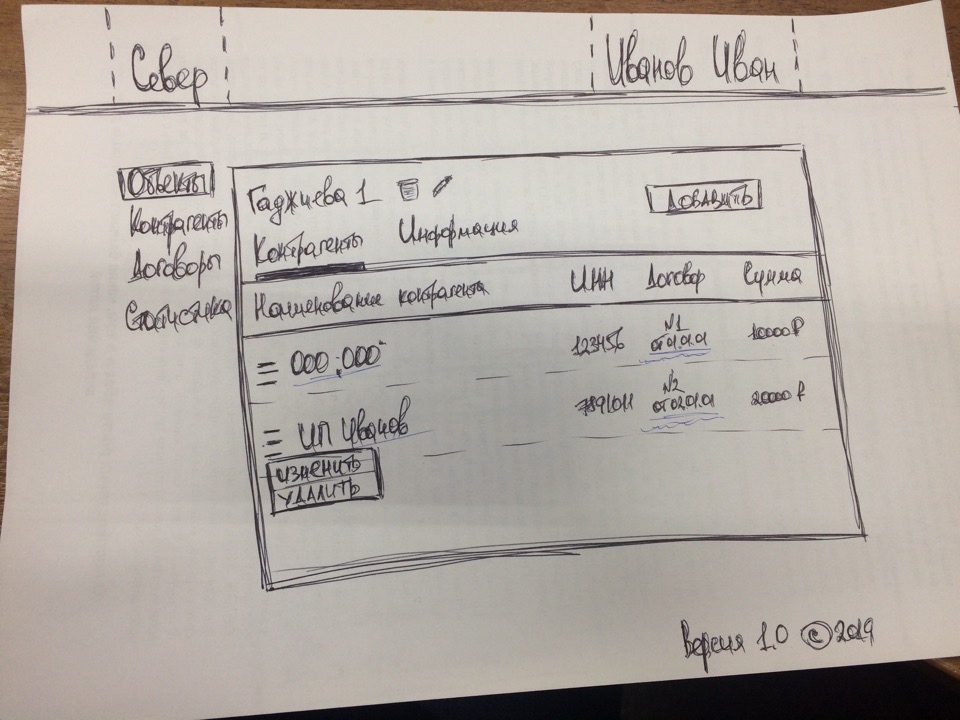 Север Иванов Иван
Объекты
Контрагенты
Договоры
Статистика
Гаджиева 1
ДОБАВИТЬ
Контрагенты Информация
Наименование контрагента ИНН Договор Сумма
ООО "ООО" 123456 №1 от 01.01.01 10000 ₽
ИП Иванов 7891011 №2 от 02.01.01 20000 ₽
ИЗМЕНИТЬ
УДАЛИТЬ
Версия 1.0 © 2019